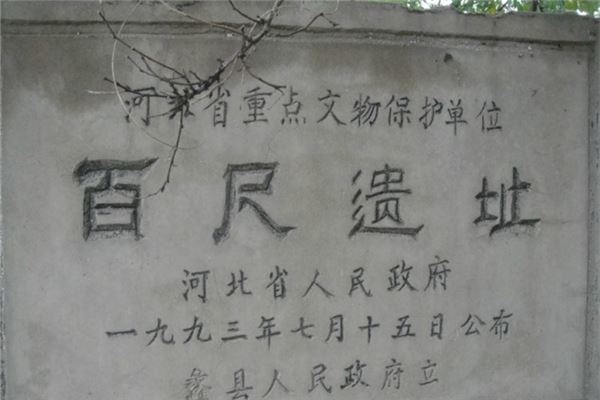 河北省重点文物保护单位
百尺遗址
河北省人民政府
一九九三年七月十五日公布
蠡县人民政府立